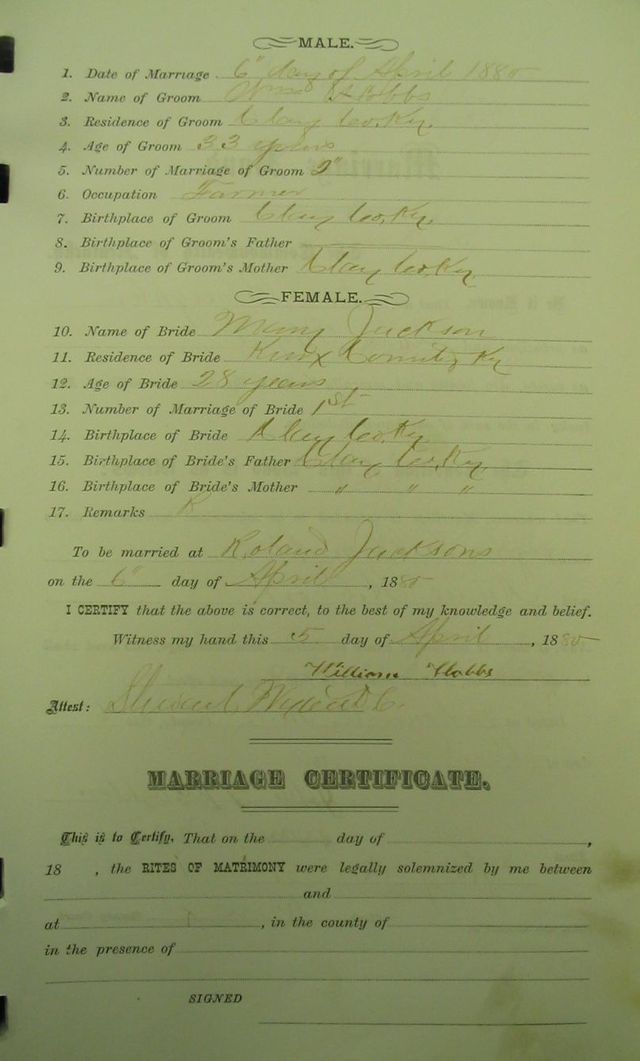 MALE.
1. Date of Marriage 6" day of April 1880
2. Name of Groom Wm Hobbs
3. Residence of Groom Clay Co. Ky.
4. Age of Groom 33 years
5. Number of Marriage of Groom 2"
6. Occupation Farmer
7. Birthplace of Groom Clay Co. Ky.
8. Birthplace of Groom's Father
9. Birthplace of Groom's Mother Clay Co. Ky.
FEMALE.
10. Name of Bride Mary Jackson
11. Residence of Bride Knox County Ky
12. Age of Bride 28 years
13. Number of Marriage of Bride 1st
14. Birthplace of Bride Clay Co. Ky
15. Birthplace of Bride's Father Clay Co. Ky.
16. Birthplace of Bride's Mother " " "
17. Remarks
To be married at Roland Jacksons
on the 6" day of April, 1880
I CERTIFY that the above is correct, to the best of my knowledge and belief.
Witness my hand this 5 day of April, 1880
William Hobbs
Attest:
MARRIAGE CERTIFICATE.
This is to Certify, That on the day of ,
18 , the RITES OF MATRIMONY were legally solemnized by me between
and
at , in the county of
in the presence of
SIGNED